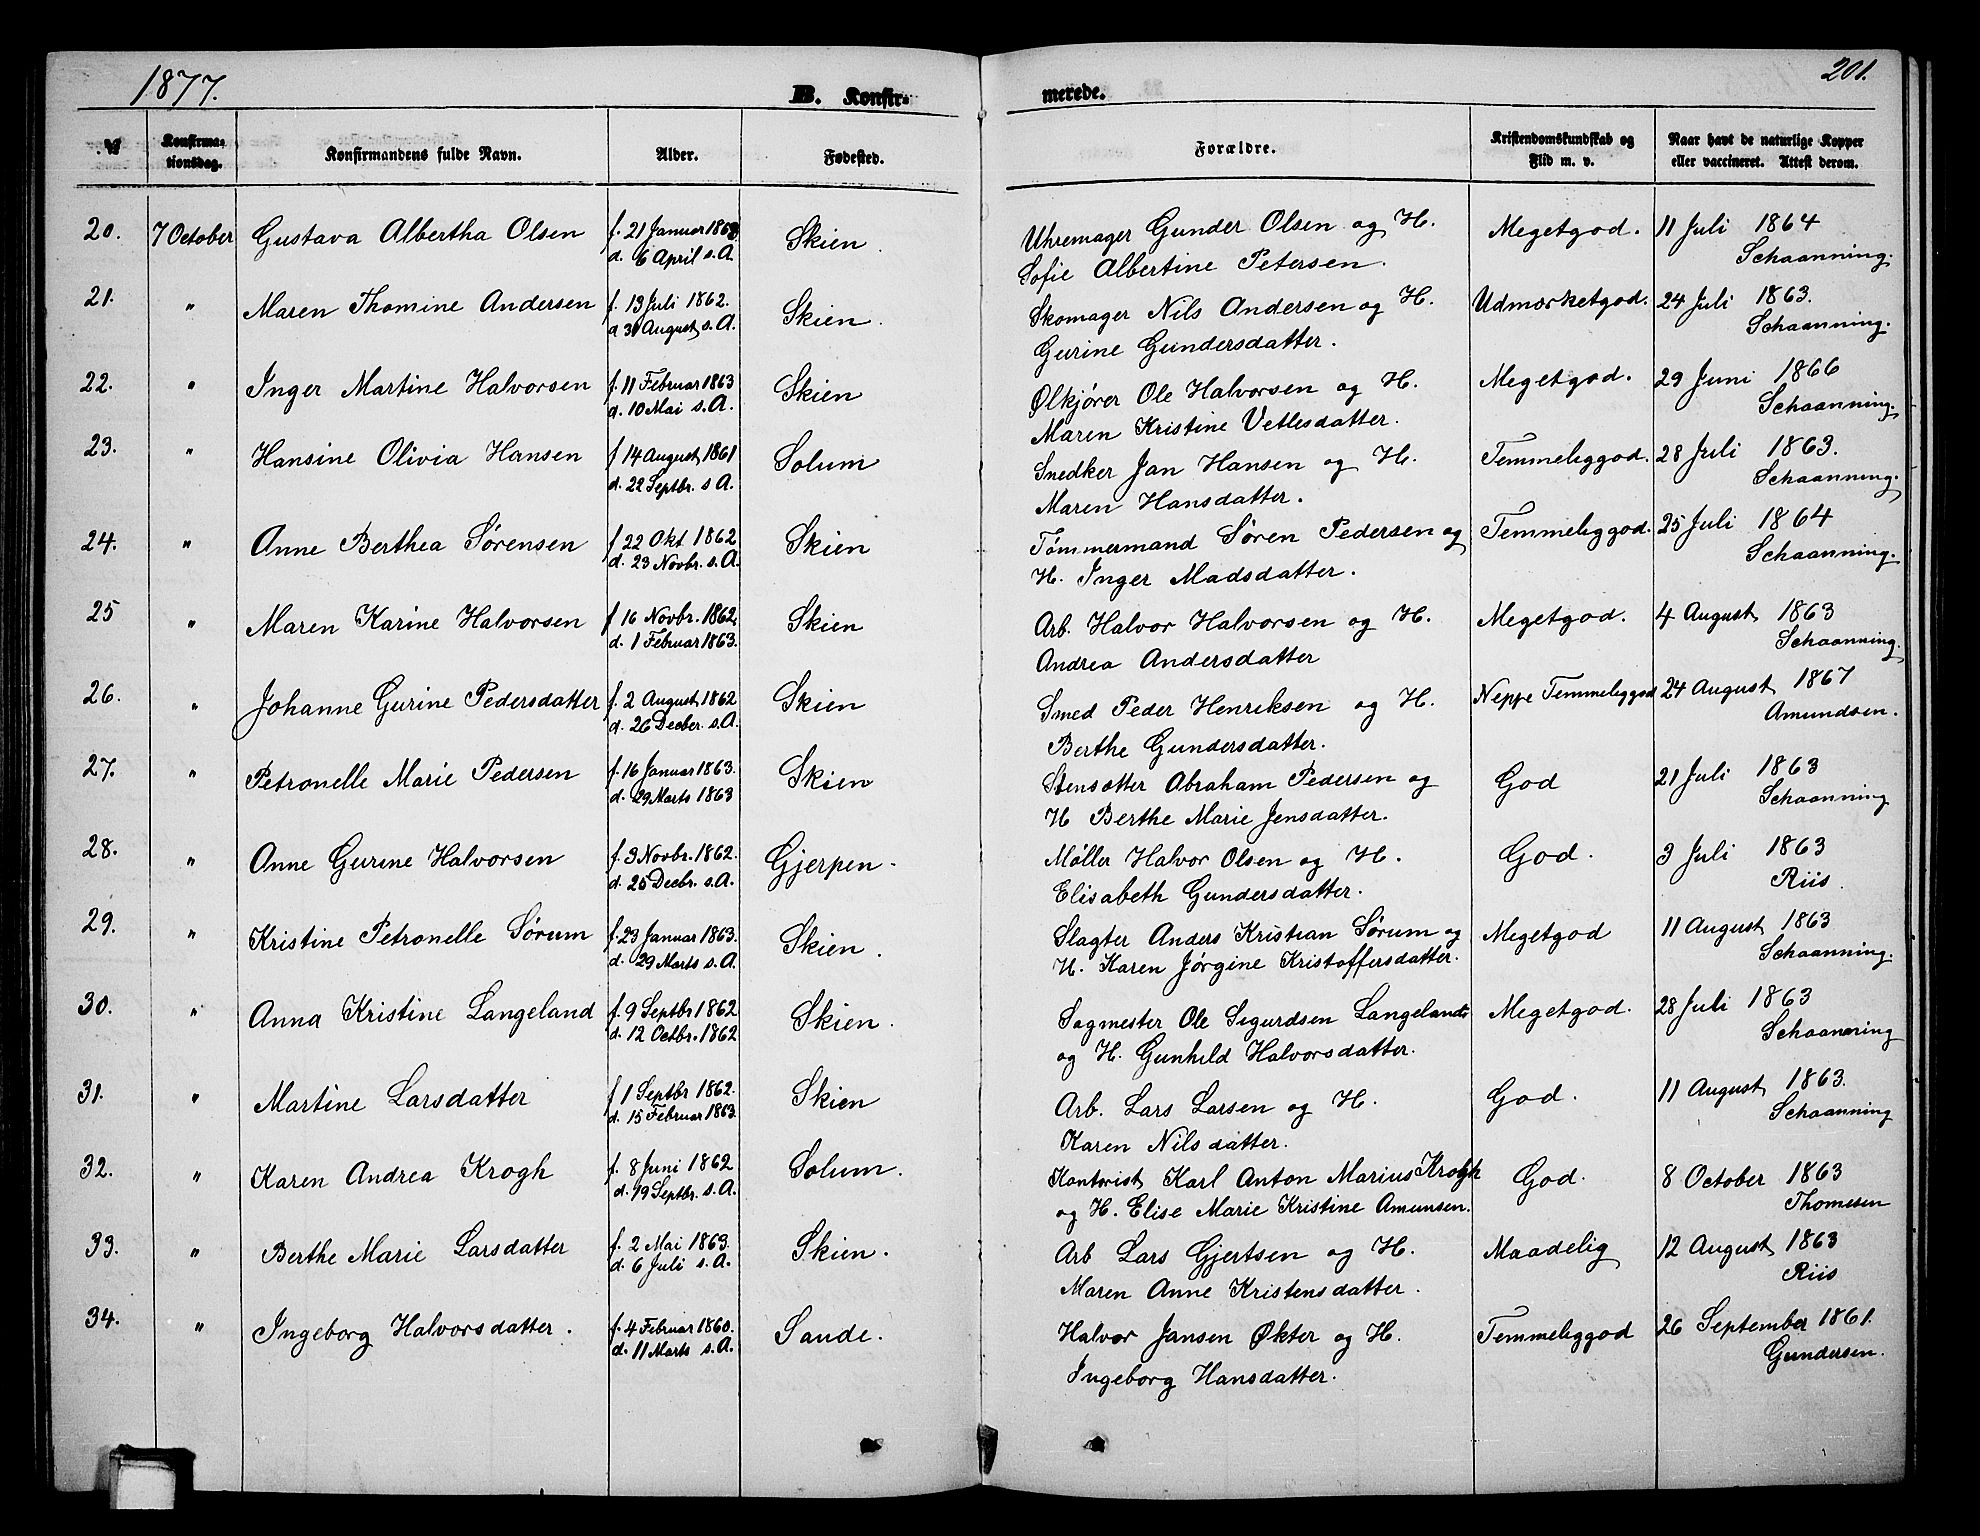 1877.
B. Konfir-
merede.
201.
№
Konfirma-
tionsdag.
Konfirmandens fulde Navn.
Alder.
Fødested.
Forældre.
Kristendomskundskab og
Flid m. v.
Naar havt de naturlige Kopper
eller vaccineret. Attest derom.
20. 7 October Gustava Albertha Olsen f. 21 Januar 1863 Skien. Uhremager Gunder Olsen og H. Megetgod. 11 Juli 1864
d. 6 April s.A. Sofie Albertine Petersen. Schaanning.
21. " Maren Thomine Andersen f. 13 Juli 1862. Skien. Skomager Nils Andersen og H. Udmærketgod. 24 Juli 1863.
d 31 August s.A. Gurine Gundersdatter. Schaanning.
22. " Inger Martine Halvorsen f. 11 Februar 1863 Skien Ølkjører Ole Halvorsen og H. Megetgod. 29 Juni 1866
d. 10 Mai s.A. Maren Kristine Vetlesdatter. Schaanning.
23. " Hansine Olivia Hansen f 14 August 1861 Solum Snedker Jan Hansen og H. Temmeliggod. 28 Juli 1863.
d. 22 Septbr. s A. Maren Hansdatter. Schaanning.
24. " Anne Berthea Sørensen f 22 Okt 1862 Skien Tømmermand Søren Pedersen og Temmeliggod. 25 Juli 1864
d. 23 Novbr. s.A. H. Inger Madsdatter. Schaanning.
25 " Maren Karine Halvorsen f 16 Novbr. 1862. Skien Arb. Halvor Halvorsen og H. Megetgod. 4 August 1863
d. 1 Februar 1863. Andrea Andersdatter Schaanning.
26. " Johanne Gurine Pedersdatter f. 2 August 1862 Skien Smed Peder Henriksen og H. Neppe Temmeliggod 24 August 1867
d. 26 Decber. s.A. Berthe Gundersdatter. Amundsen.
27. " Petronelle Marie Pedersen f. 16 Januar 1863. Skien Stensætter Abraham Pedersen og God 21 Juli 1863
d. 29 Marts 1863 H Berthe Marie Jensdatter. Schaanning
28. " Anne Gurine Halvorsen f. 3 Novbr. 1862. Gjerpen. Møller Halvor Olsen og H. God. 3 Juli 1863
d. 25 Decbr. s.A. Elisabeth Gundersdatter. Riis.
29. " Kristine Petronelle Sørum f. 23 Januar 1863. Skien. Slagter Anders Kristian Sørum og Megetgod 11 August 1863
d. 29 Marts s.A. H. Karen Jørgine Kristoffersdatter. Schaanning.
30. " Anna Kristine Langeland f. 9 Septbr 1862 Skien. Sagmester Ole Sigurdsen Langeland Megetgod. 28 Juli 1863
d. 12 Octbr. 1862 og H. Gunhild Halvorsdatter. Schaanning
31. " Martine Larsdatter f 1 Septbr 1862. Skien Arb. Lars Larsen og H. God. 11 August 1863.
d. 15 Februar 1863. Karen Nilsdatter. Schaanning
32. " Karen Andrea Krogh f. 8 Juni 1862 Solum. Kontorist Karl Anton Marius Krogh God. 8 October 1863
d. 19 Septbr. s.A. og H. Elise Marie Kristine Amunsen. Thomesen
33. " Berthe Marie Larsdatter f. 2 Mai 1863. Skien. Arb Lars Gjertsen og H. Maadelig 12 August 1863
d. 6 Juli s.A. Maren Anne Kristensdatter. Riis
34. " Ingeborg Halvorsdatter. f. 4 Februar 1860. Sande. Halvor Jansen Økter og H. Temmeliggod 26 September 1861.
d. 11 Marts s.A. Ingeborg Hansdatter. Gundersen.